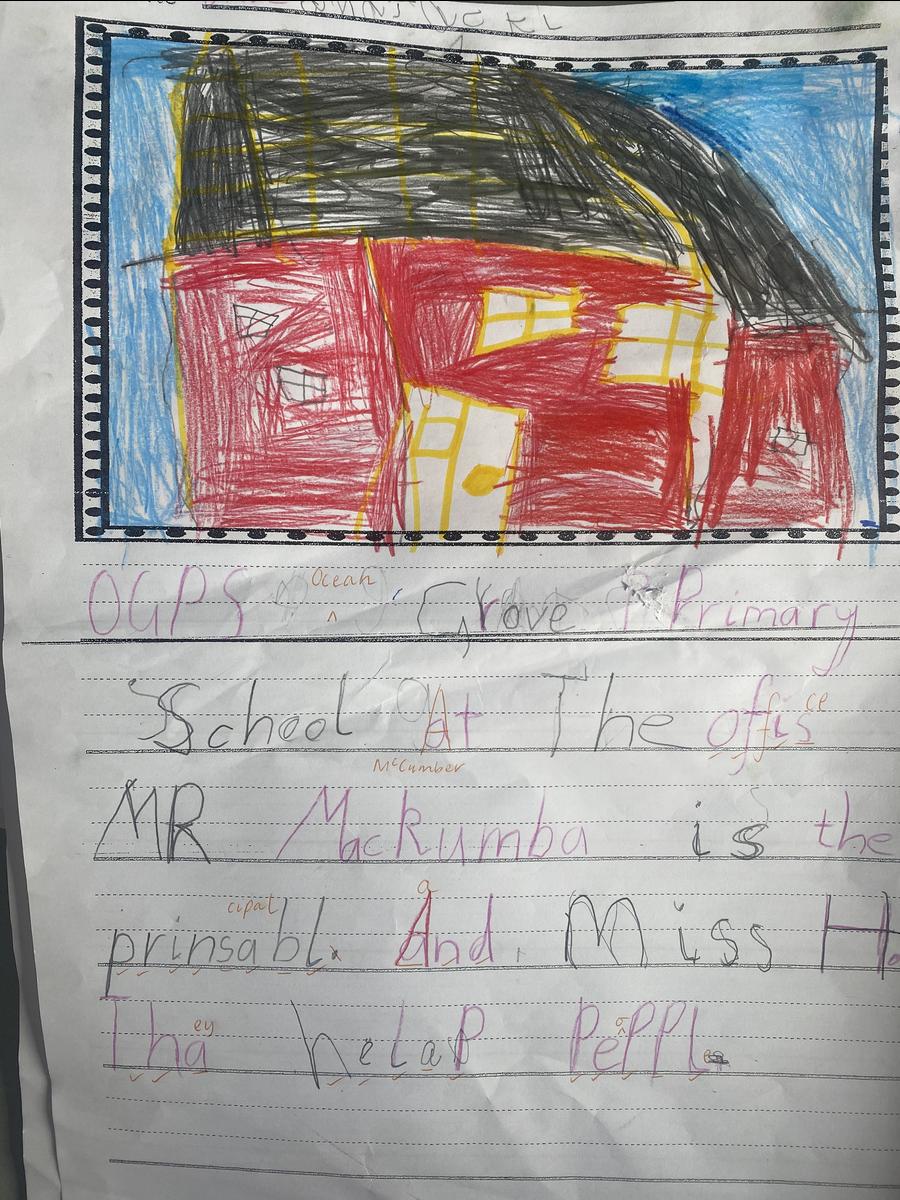 OGPS Ocean Grove Primary
School At The offis ce
McCumber
MR Mackumba is the
cipal
prinsabl. a And. Miss
Tha ey helap Peppl. o